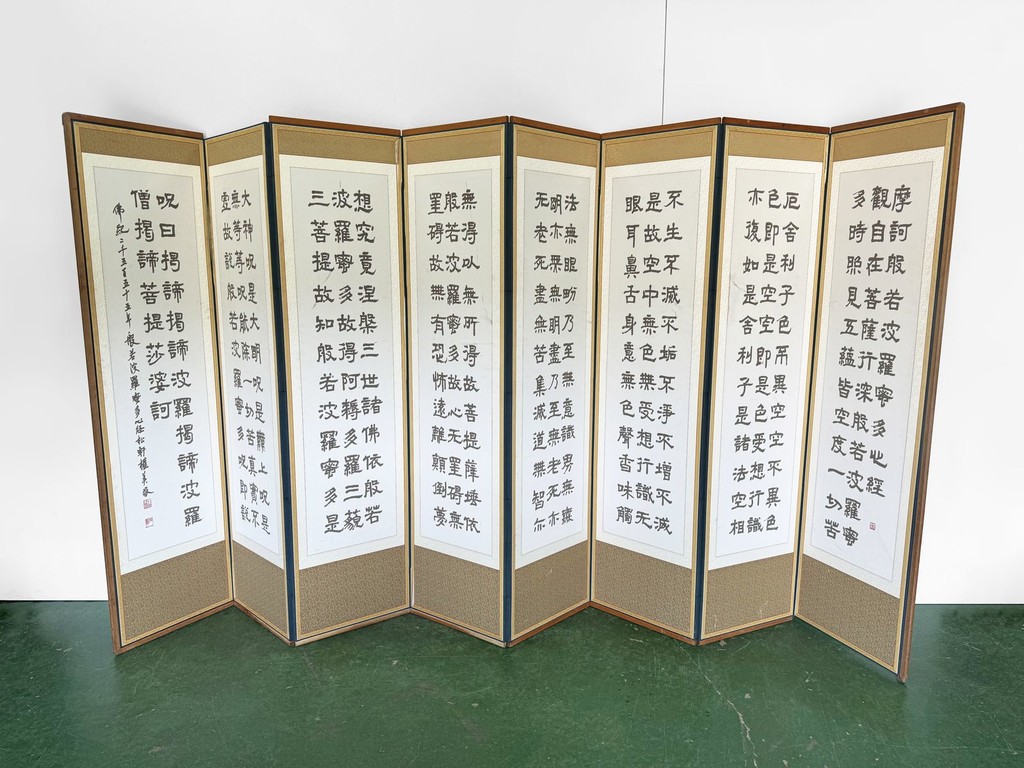 摩訶般若波羅蜜多心經
觀自在菩薩行深般若波羅蜜
多時照見五蘊皆空度一切苦
厄舍利子色不異空空不異色
色即是空空即是色受想行識
亦復如是舍利子是諸法空相
不生不滅不垢不淨不增不減
是故空中無色無受想行識无
眼耳鼻舌身意無色聲香味觸
法無眼界乃至無意識界無無
明亦無無明盡乃至無老死亦
无老死盡無苦集滅道無智亦
無得以無所得故菩提薩埵依
般若波羅蜜多故心无罣碍無
罣碍故無有恐怖遠離顛倒夢
想究竟涅槃三世諸佛依般若
波羅蜜多故得阿耨多羅三藐
三菩提故知般若波羅蜜多是
大神呪是大明呪是無上呪是
無等等呪能除一切苦真實不
虛故說般若波羅蜜多呪即說
呪曰揭諦揭諦波羅揭諦波羅
僧揭諦菩提莎婆訶
佛紀二千五百五十五年 般若波羅蜜多心経 松軒 權美